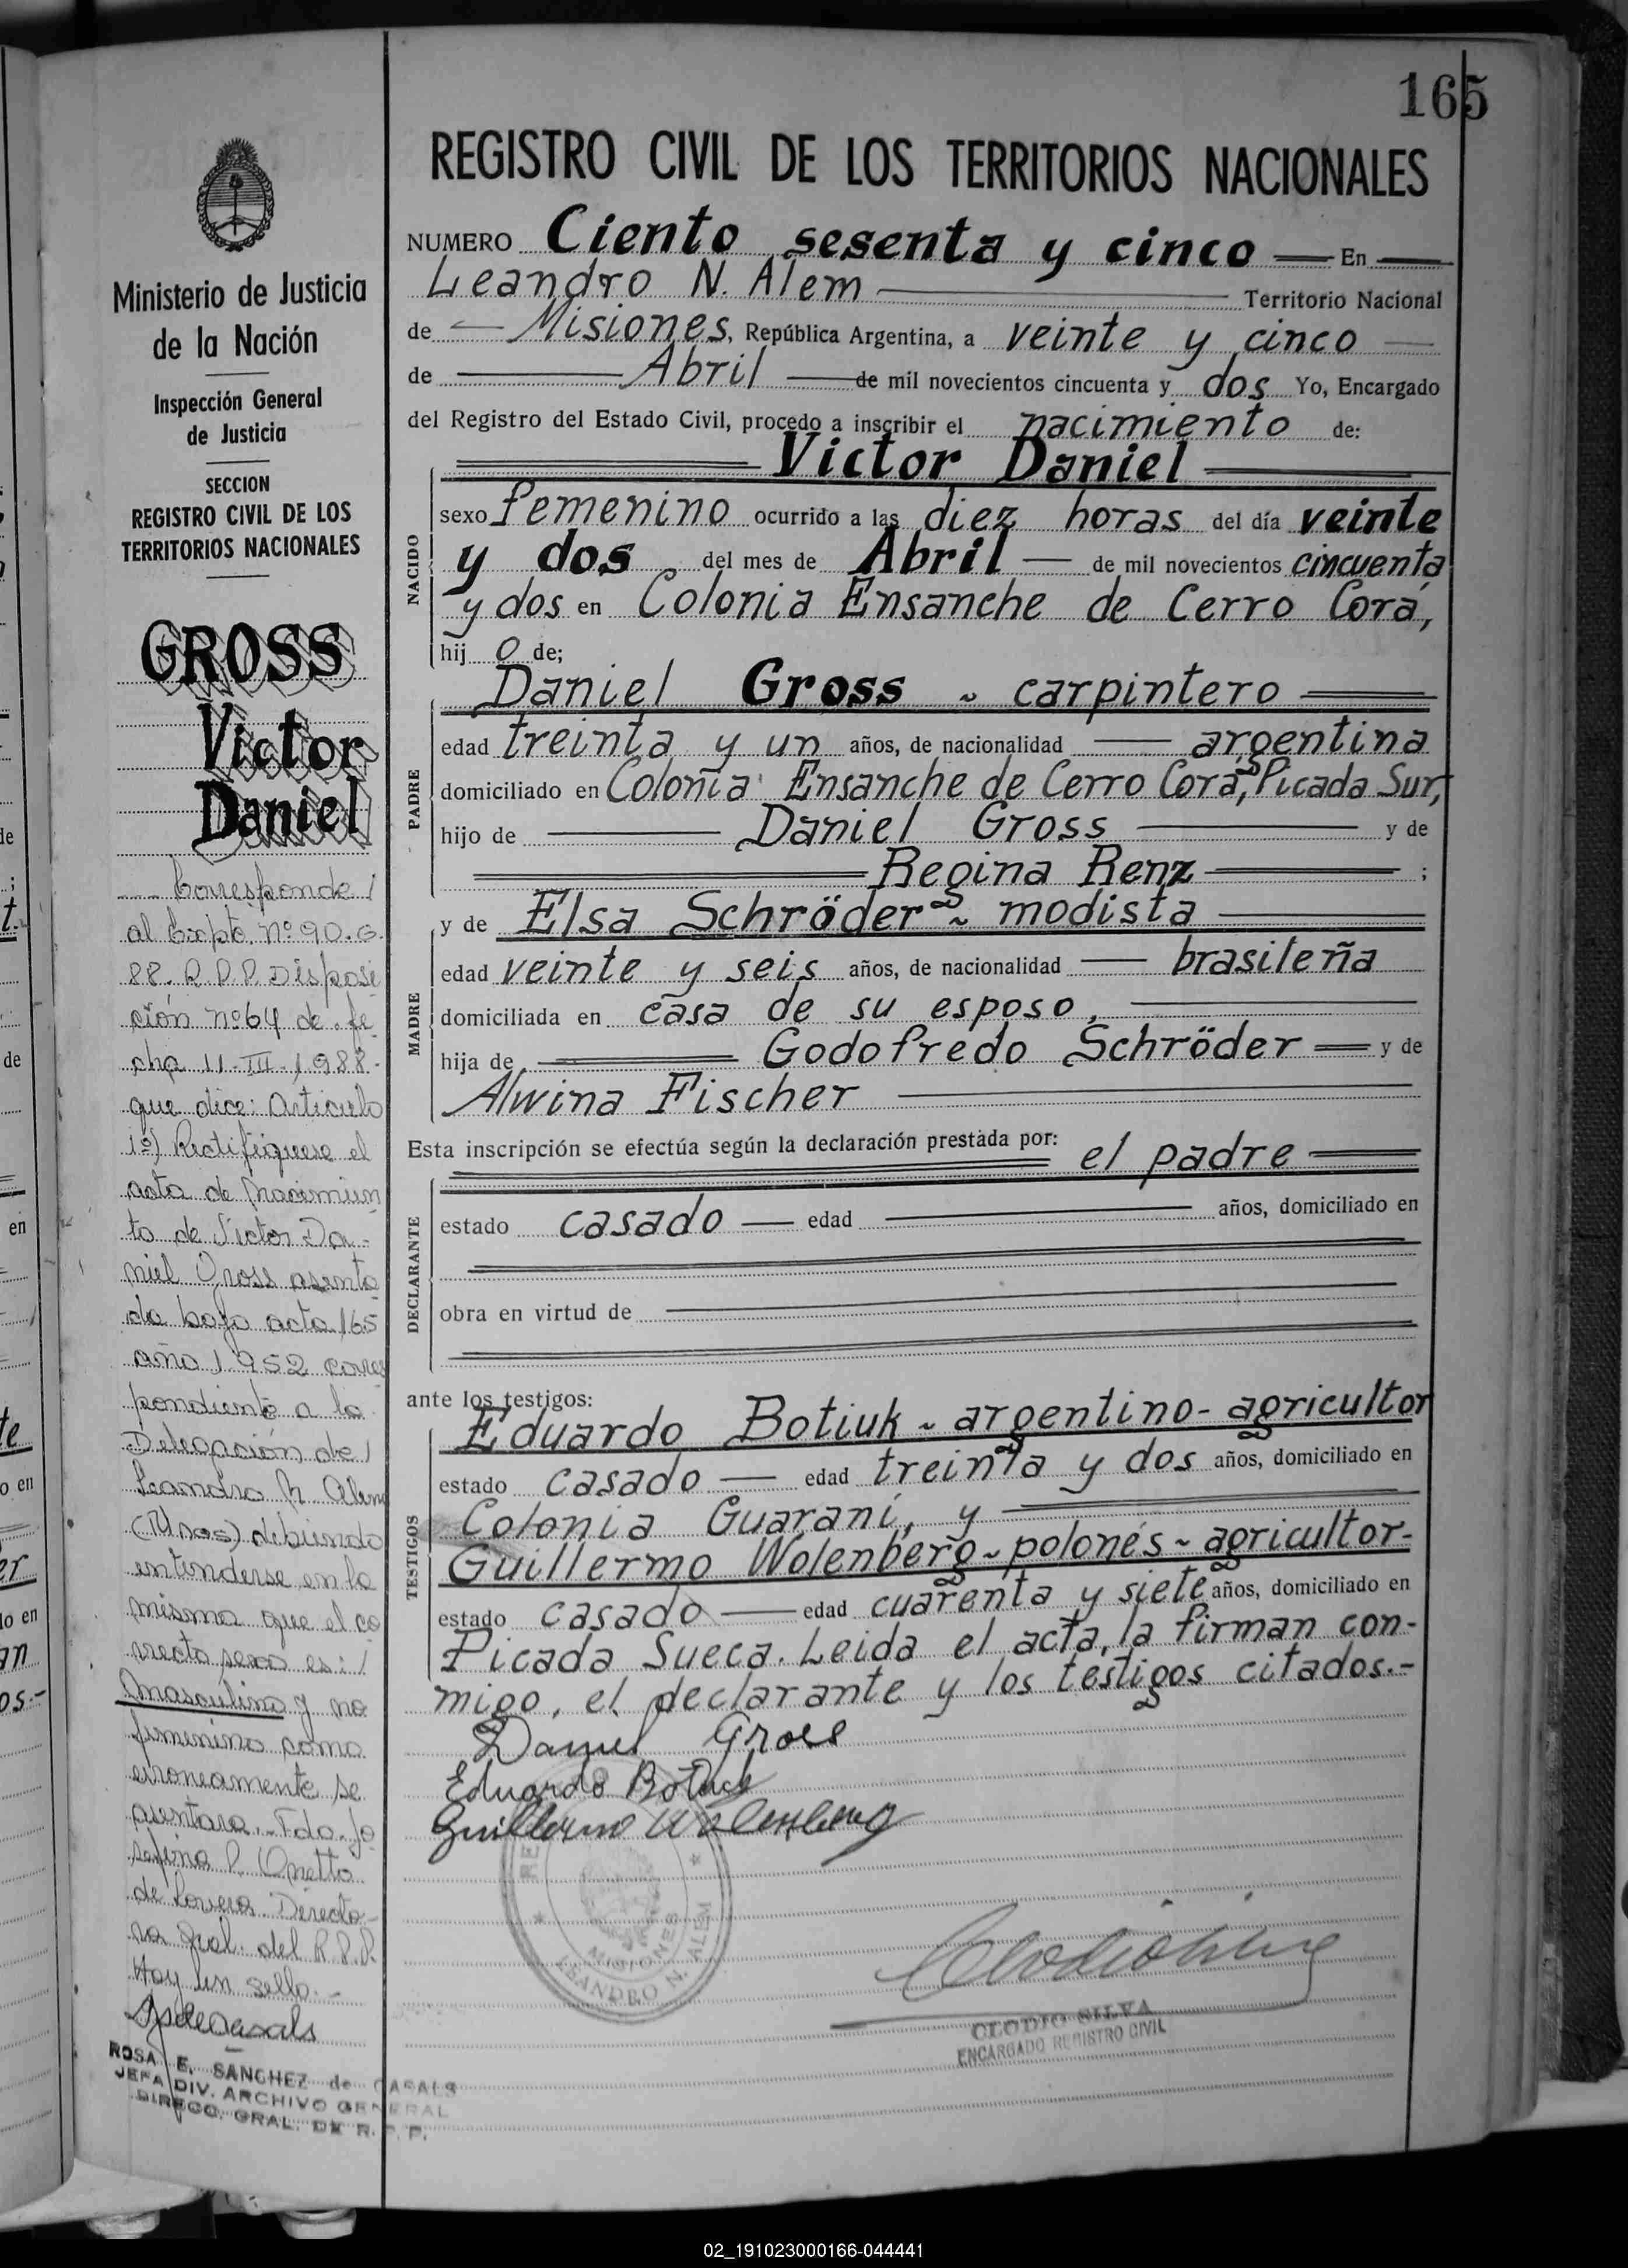 165
REGISTRO CIVIL DE LOS TERRITORIOS NACIONALES
NUMERO Ciento sesenta y cinco — En —
Leandro N. Alem — Territorio Nacional
de — Misiones, República Argentina, a veinte y cinco —
de — Abril — de mil novecientos cincuenta y dos Yo, Encargado
del Registro del Estado Civil, procedo a inscribir el nacimiento de:
Victor Daniel
NACIDO
sexo femenino ocurrido a las diez horas del día veinte
y dos del mes de Abril — de mil novecientos cincuenta
y dos en Colonia Ensanche de Cerro Corá,
hij o de;
PADRE
Daniel Gross ~ carpintero
edad treinta y un años, de nacionalidad — argentina
domiciliado en Colonia Ensanche de Cerro Corá, Picada Sur,
hijo de — Daniel Gross — y de
Regina Renz ;
MADRE
y de Elsa Schröder ~ modista
edad veinte y seis años, de nacionalidad — brasileña
domiciliada en casa de su esposo,
hija de Godofredo Schröder — y de
Alwina Fischer
Esta inscripción se efectúa según la declaración prestada por: el padre
DECLARANTE
estado casado — edad — años, domiciliado en
obra en virtud de
ante los testigos:
TESTIGOS
Eduardo Botiuk ~ argentino - agricultor
estado casado — edad treinta y dos años, domiciliado en
Colonia Guaraní, y
Guillermo Wolenberg ~ polonés ~ agricultor-
estado casado — edad cuarenta y siete años, domiciliado en
Picada Sueca. Leida el acta, la firman con-
migo, el declarante y los testigos citados.-
Daniel Gross
Eduardo Botiuk
Guillermo Wolenberg
MISIONES
LEANDRO N. ALEM
CLODIO SILVA
ENCARGADO REGISTRO CIVIL
Ministerio de Justicia
de la Nación
Inspección General
de Justicia
SECCION
REGISTRO CIVIL DE LOS
TERRITORIOS NACIONALES
GROSS
Victor
Daniel
Corresponde
al Expte. Nº 90.G.
88. R.P.P. Disposi
ción nº 64 de fe
cha 11-III-1988-
que dice: Articulo
1º) Rectifiquese el
acta de Nacimien
to de Victor Da-
niel Gross asenta
da bajo acta 165
año 1952 corres
pondiente a la
Delegación de
Leandro N. Alem
(Mnes) debiendo
entenderse en la
misma que el co
rrecto sexo es:
Masculino y no
femenino como
erroneamente se
asentara. Fdo. Jo
sefina P. Onetto
de Directo-
ra Gral. del R.P.P.
Hay un sello.-
ROSA E. SANCHEZ de CASALS
JEFA DIV. ARCHIVO GENERAL
DIRECC. GRAL. DE R. P. P.
02_191023000166-044441